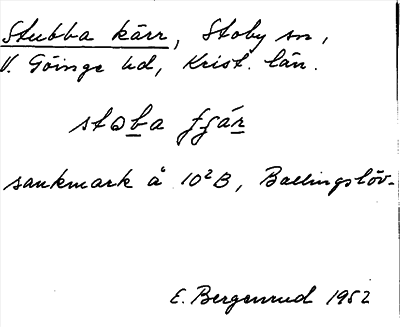 Stubba kärr, Stoby sn,
V. Göinge hd, Krist. län.
stoba fgár
sankmark å 10²B, Ballingslöv-
E. Bergenrud 1952